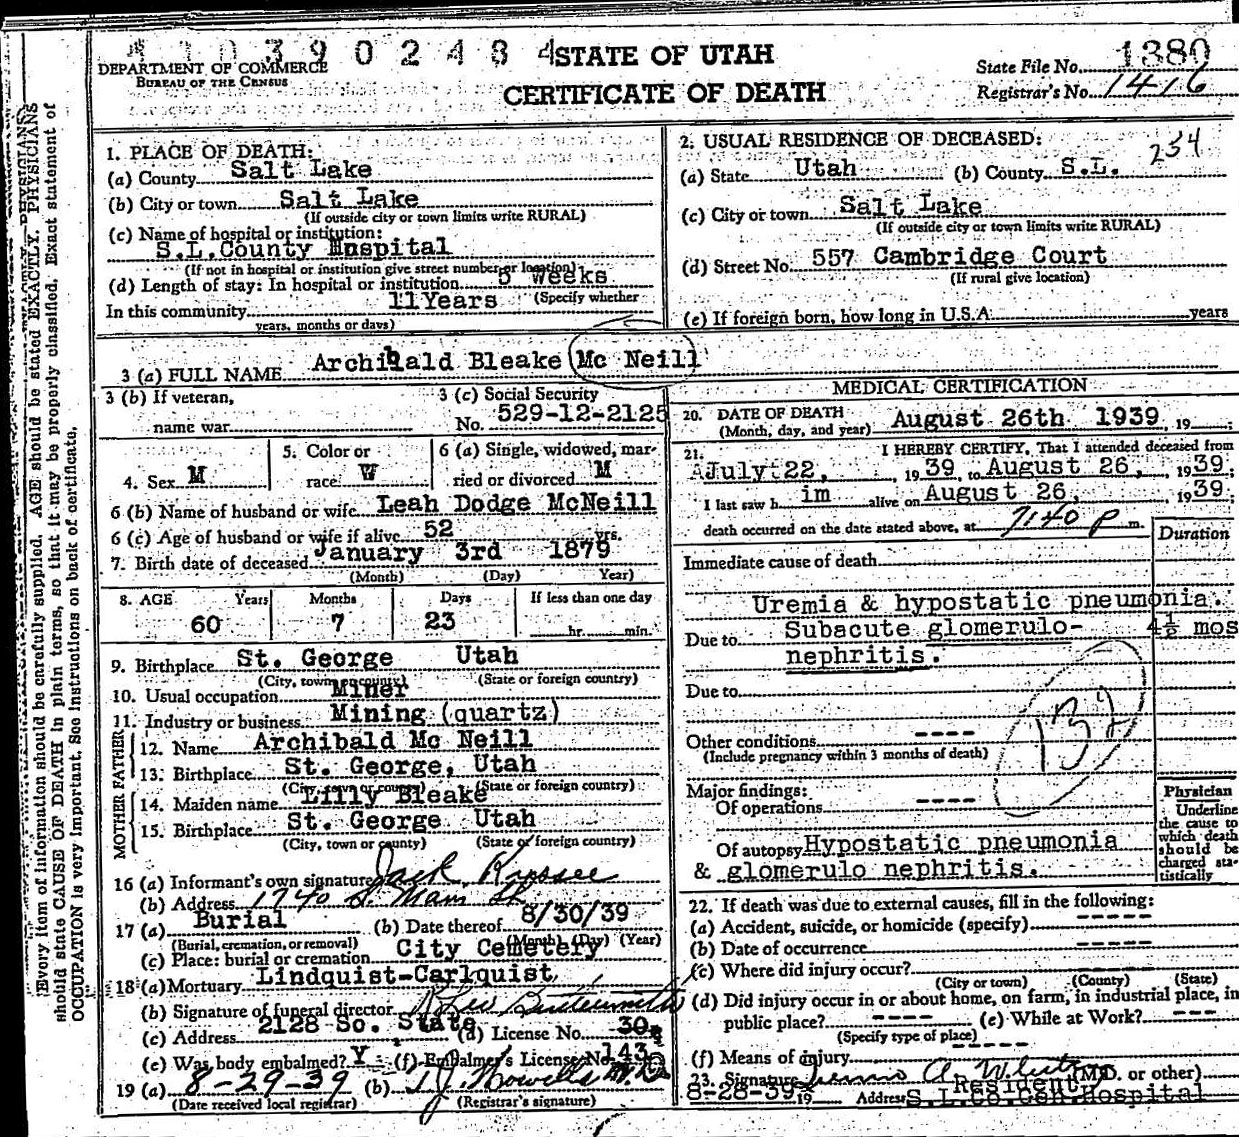 1 0 3 9 0 2 4 8 4 STATE OF UTAH
DEPARTMENT OF COMMERCE
BUREAU OF THE CENSUS
CERTIFICATE OF DEATH
State File No. 1380
Registrar's No. 1416
1. PLACE OF DEATH:
(a) County Salt Lake
(b) City or town Salt Lake
(If outside city or town limits write RURAL)
(c) Name of hospital or institution:
S.L.County Hospital
(If not in hospital or institution give street number or location)
(d) Length of stay: In hospital or institution 5 Weeks
In this community 11 Years (Specify whether
years, months or days)
2. USUAL RESIDENCE OF DECEASED: 254
(a) State Utah (b) County S.L.
(c) City or town Salt Lake
(If outside city or town limits write RURAL)
(d) Street No. 557 Cambridge Court
(If rural give location)
(e) If foreign born, how long in U.S.A. years
3 (a) FULL NAME Archibald Bleake Mc Neill
3 (b) If veteran,
name war
3 (c) Social Security
No. 529-12-2125
4. Sex M
5. Color or
race W
6 (a) Single, widowed, mar-
ried or divorced M
6 (b) Name of husband or wife Leah Dodge McNeill
6 (c) Age of husband or wife if alive 52 yrs.
7. Birth date of deceased January 3rd 1879
(Month) (Day) Year)
8. AGE Years Months Days If less than one day
60 7 23 hr. min.
9. Birthplace St. George Utah
(City, town or county) (State or foreign country)
10. Usual occupation Miner
11. Industry or business Mining (quartz)
FATHER
12. Name Archibald Mc Neill
13. Birthplace St. George, Utah
(City, town or county) (State or foreign country)
MOTHER
14. Maiden name Lilly Bleake
15. Birthplace St. George Utah
(City, town or county) (State or foreign country)
16 (a) Informant's own signature Jack
(b) Address 1740 S. Main St
17 (a) Burial (b) Date thereof 8/30/39
(Burial, cremation, or removal) (Month) (Day) (Year)
(c) Place: burial or cremation City Cemetery
18 (a) Mortuary Lindquist-Carlquist
(b) Signature of funeral director
(c) Address 2128 So. State (d) License No. 30
(e) Was body embalmed? Y (f) Embalmer's License No. 143
19 (a) 8-29-39 (b) T J Howells M.D.
(Date received local registrar) (Registrar's signature)
MEDICAL CERTIFICATION
20. DATE OF DEATH
(Month, day, and year) August 26th 1939, 19
21. I HEREBY CERTIFY, That I attended deceased from
July 22, 1939, to August 26, 1939;
I last saw h im alive on August 26, 1939;
death occurred on the date stated above, at 7:40 P m.
Duration
Immediate cause of death
Uremia & hypostatic pneumonia.
Due to Subacute glomerulo- 4½ mos
nephritis.
Due to
132
Other conditions ----
(Include pregnancy within 3 months of death)
Major findings:
Of operations ----
Of autopsy Hypostatic pneumonia
& glomerulo nephritis.
Physician
Underline
the cause to
which death
should be
charged sta-
tistically
22. If death was due to external causes, fill in the following:
(a) Accident, suicide, or homicide (specify) -----
(b) Date of occurrence -----
(c) Where did injury occur? -----
(City or town) (County) (State)
(d) Did injury occur in or about home, on farm, in industrial place, in
public place? ---- (e) While at Work? ---
(Specify type of place)
(f) Means of injury -----
23. Signature (M.D. or other)
Resident
8-28-39 19 Address S.L.Co.Gen.Hospital
Every item of information should be carefully supplied. AGE should be stated EXACTLY. PHYSICIANS
should state CAUSE OF DEATH in plain terms, so that it may be properly classified. Exact statement of
OCCUPATION is very important. See instructions on back of certificate.